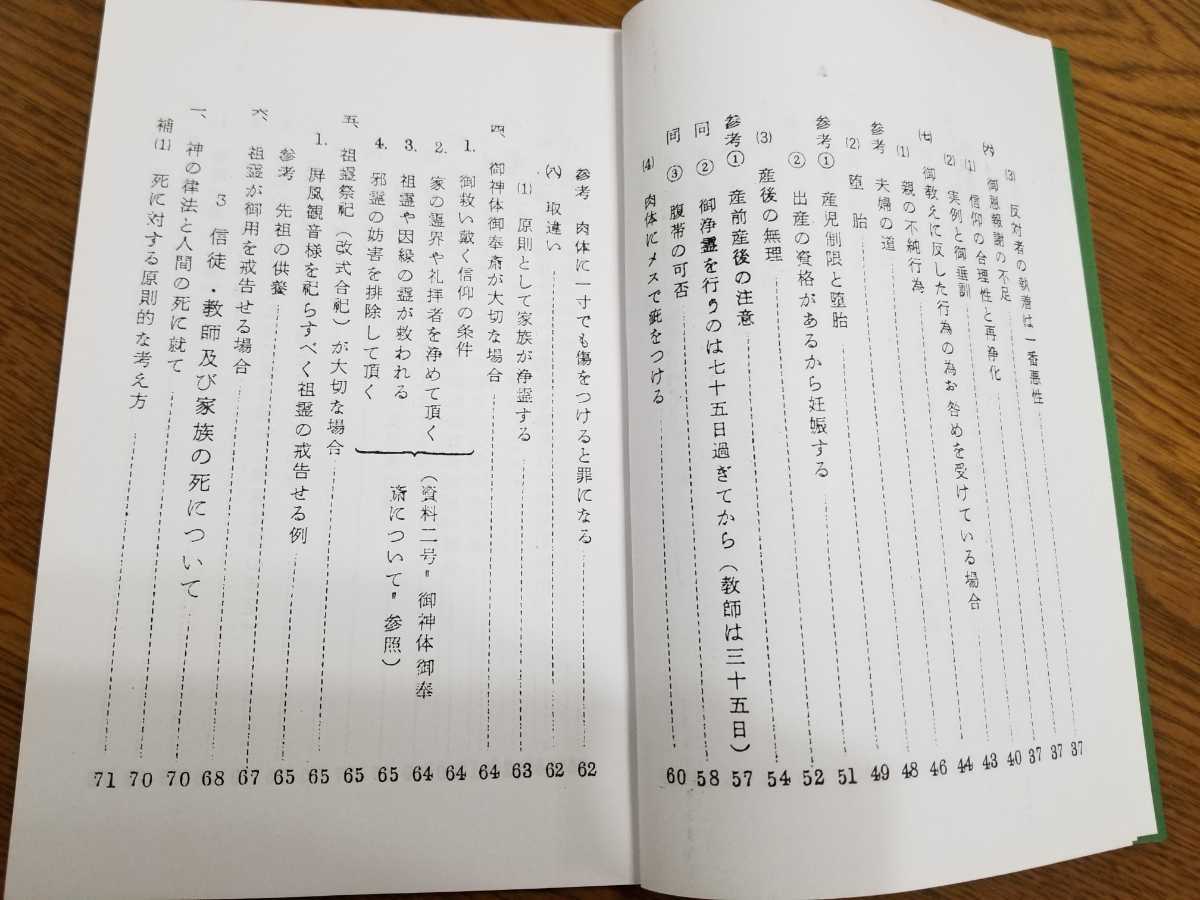 (3) 反対者の執着は一番悪性 37
(六) 御恩報謝の不足 37
(1) 信仰の合理性と再浄化 37
(2) 実例と御垂訓 40
(七) 御教えに反した行為の為お咎めを受けている場合 43
(1) 親の不純行為 44
参考 夫婦の道 46
(2) 堕胎 48
参考① 産児制限と堕胎 49
② 出産の資格があるから妊娠する 51
(3) 産後の無理 52
参考① 産前産後の注意 54
同 ② 御浄霊を行うのは七十五日過ぎてから(教師は三十五日) 57
同 ③ 腹帯の可否 58
(4) 肉体にメスで疵をつける 60
参考 肉体に一寸でも傷をつけると罪になる 62
(八) 取違い 62
(1) 原則として家族が浄霊する 63
四、御神体御奉斎が大切な場合 64
1. 御救い戴く信仰の条件 64
2. 家の霊界や礼拝者を浄めて頂く 64
3. 祖霊や因縁の霊が救われる 65
4. 邪霊の妨害を排除して頂く 65
(資料二号〝御神体御奉
斎について〟参照)
五、祖霊祭祀(改式合祀)が大切な場合 65
1. 屏風観音様を祀らすべく祖霊の戒告せる例 65
参考 先祖の供養 67
六、祖霊が御用を戒告せる場合 68
3 信徒・教師及び家族の死について 70
一、神の律法と人間の死に就て 70
補(1) 死に対する原則的な考え方 71